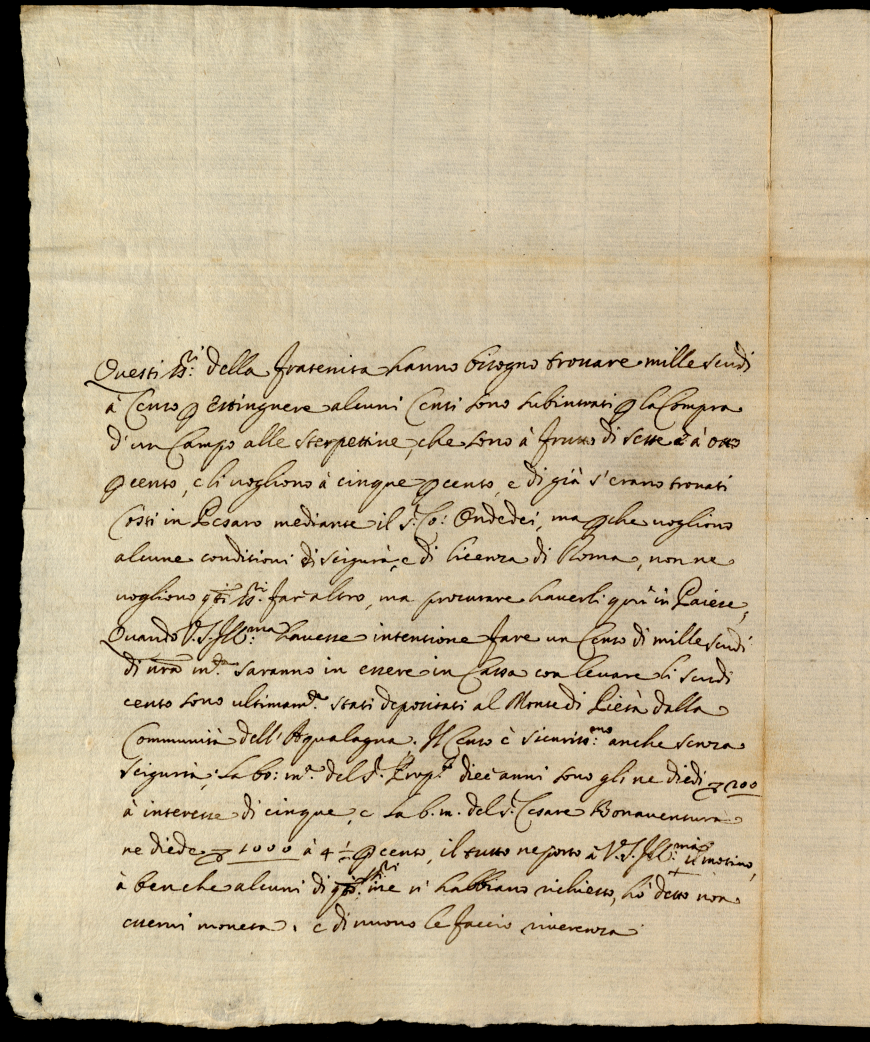 Questi SS.ri della Fraternita hanno bisogno trovare mille scudi
à Censo p estinguere alcuni Censi sono subintrati p la Compra
d'un Campo alle Sterpettine, che sono à frutto di sette et à otto
p cento, e li vogliono à cinque p cento, e di già s'erano trovati
Costì in Pesaro mediante il S.r Co: Ondedei, ma p che vogliono
alcune conditioni di sicurtà, e di licenza di Roma, non ne
vogliono q.ti SS.ri far altro, ma procurare haverli quà in Paiese,
Quando V.S. Ill.ma havesse intentione fare un Censo di mille scudi
di nra m.ta saranno in essere in Cassa con levare li scudi
cento sono ultimam.te stati depositati al Monte di Pietà dalla
Communità dell'Aqualagna. Il Censo è sicuriss.mo anche senza
sigurtà; la bo: m.a del S.r Prop.to dieci anni sono gli ne diedi 200
à interesse di cinque, e la b. m. del S.r Cesare Bonaventura
ne diede 1000 à 4 1/2 p cento, il tutto ne porto à V.S. Ill.ma il motivo,
à benche alcuni di q.ti SS.ri me n'habbiano richiesto, hò detto non
esservi moneta. e di nuovo le faccio riverenza